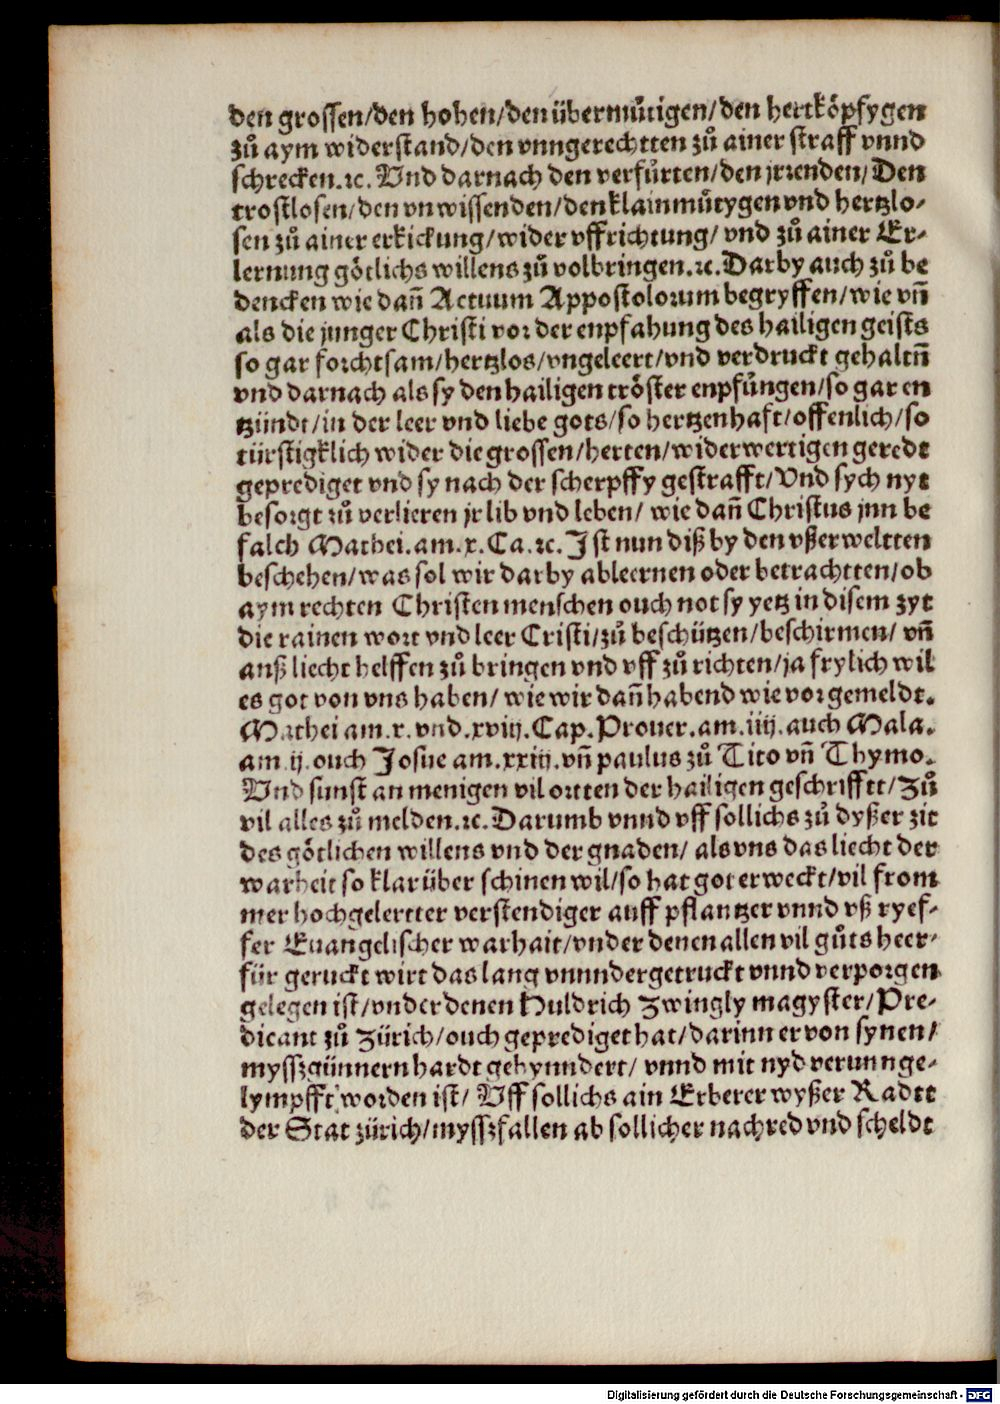 den grossen/den hohen/den übermuͤtigen/den hertköpfygen
zuͦ aym widerstand/den vnngerechtten zuͦ ainer straff vnnd
schrecken.ꝛc. Vnd darnach den verfuͤrten/den jrrenden/Den
trostlosen/den vnwissenden/den klainmuͤtygen vnd hertzlo-
sen zuͦ ainer erkickung/wider vffrichtung/ vnd zuͦ ainer Er-
lernung goͤtlichs willens zuͦ volbringen.ꝛc. Darby auch zuͦ be
dencken wie dañ Actuum Appostolorum begryffen/wie vñ
als die junger Christi vor der enpfahung des hailigen geists
so gar forchtsam/hertzlos/vngeleert/vnd verdruckt gehaltñ
vnd darnach als sy den hailigen tröster enpfuͤngen/so gar en
tzündt/in der leer vnd liebe gots/so hertzenhaft/offenlich/so
türstigklich wider die grossen/herten/widerwertigen geredt
geprediget vnd sy nach der scherpffy gestrafft/Vnd sych nyt
besorgt zuͦ verlieren jr lib vnd leben/ wie dañ Christus jnn be
falch Mathei.am.x.Ca.ꝛc. Ist nun diß by den vßerweltten
beschehen/was sol wir darby ableernen oder betrachtten/ob
aym rechten Christen menschen ouch not sy yetz in disem zyt
die rainen wort vnd leer Cristi/zuͦ beschützen/beschirmen/ vñ
anß liecht helffen zuͦ bringen vnd vff zuͦ richten/ja frylich wil
es got von vns haben/ wie wir dañ habend wie vorgemeldt.
Mathei am.x. vnd.xviij.Cap.Prouer.am.iiij.auch Mala.
am.ij.ouch Josue am.xxiij.vñ paulus zuͦ Tito vñ Thymo.
Vnd sunst an menigen vil ortten der hailigen geschrifftt/Zuͦ
vil alles zuͦ melden.ꝛc. Darumb vnnd vff sollichs zuͦ dyßer zit
des goͤtlichen willens vnd der gnaden/ als vns das liecht der
warheit so klar über schinen wil/so hat got erweckt/vil from
mer hochgelertter verstendiger auff pflantzer vnnd vß ryef-
fer Euangelischer warhait/vnder denen allen vil guͦts heer-
für geruckt wirt das lang vnnndergetruckt vnnd verporgen
gelegen ist/vnder denen Huldrich Zwingly magyster/Pre-
dicant zuͦ Zürich/ouch geprediget hat/darinn er von synen/
myssz günnern hardt gehynndert/ vnnd mit nyd verunnge-
lympfft worden ist/ Vff sollichs ain Erberer wyßer Radtt
der Stat zürich/mysszfallen ab sollicher nachred vnd scheldt
Digitalisierung gefördert durch die Deutsche Forschungsgemeinschaft - DFG